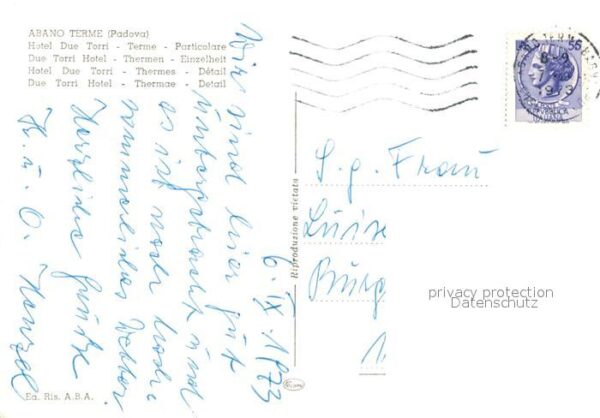 ABANO TERME (Padova)
Hotel Due Torri - Terme - Particolare
Due Torri Hotel - Thermen - Einzelheit
Hotel Due Torri - Thermes - Détail
Due Torri Hotel - Thermae - Detail
6. IX. 1973
Wir sind hier gut
untergebracht und
es ist noch
sommerliches Wetter.
Herzliche Grüße
H. u. O.
S. g. Frau
Luise
Burg
1
Riproduzione vietata
Ed. Ris. A.B.A.
55
ABANO TERME
8-9
privacy protection
Datenschutz